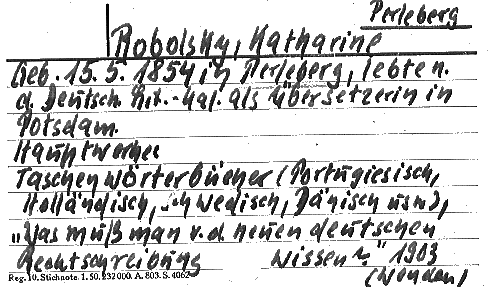 Perleberg
Robolsky, Katharine
Geb. 15.5. 1854 in Perleberg, lebte n.
d. Deutsch. Lit.-Kal. als Übersetzerin in
Potsdam.
Hauptwerke:
Taschenwörterbücher (Portugiesisch,
Holländisch, Schwedisch, Dänisch usw.),
„Was muß man v. d. neuen deutschen
Rechtschreibung wissen?" 1903
Reg. 10. Stichnote. 1. 50. 232000. A. 803. S. 4062